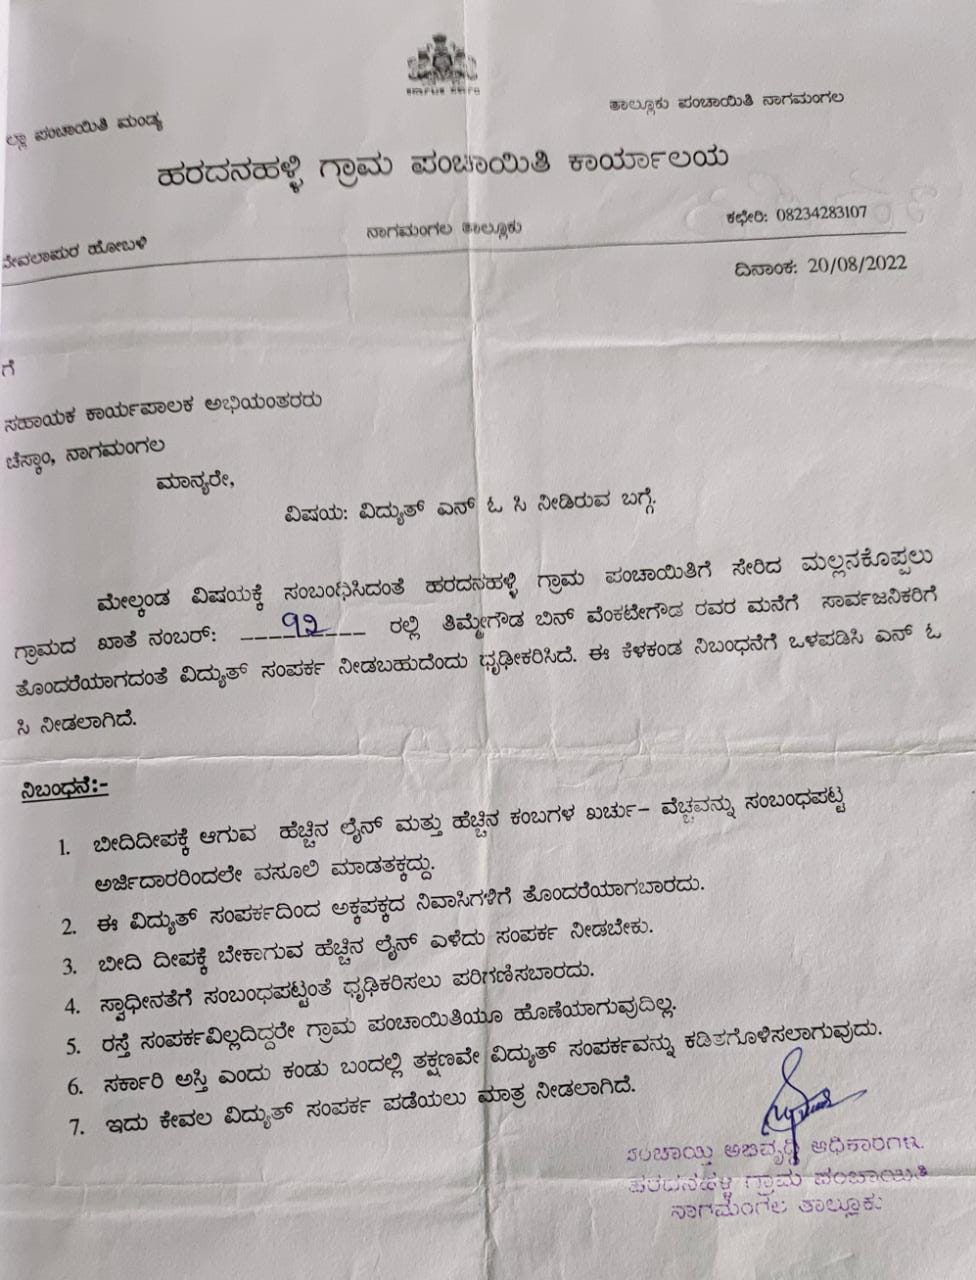 ತಾಲ್ಲೂಕು ಪಂಚಾಯಿತಿ ನಾಗಮಂಗಲ
ಲ್ಲಾ ಪಂಚಾಯಿತಿ ಮಂಡ್ಯ
ಹರದನಹಳ್ಳಿ ಗ್ರಾಮ ಪಂಚಾಯಿತಿ ಕಾರ್ಯಾಲಯ
ದೇವಲಾಪುರ ಹೋಬಳಿ
ನಾಗಮಂಗಲ ತಾಲ್ಲೂಕು
ಕಛೇರಿ: 08234283107
ದಿನಾಂಕ: 20/08/2022
ಗೆ
ಸಹಾಯಕ ಕಾರ್ಯಪಾಲಕ ಅಭಿಯಂತರರು
ಚೆಸ್ಕಾಂ, ನಾಗಮಂಗಲ
ಮಾನ್ಯರೇ,
ವಿಷಯ: ವಿದ್ಯುತ್ ಎನ್ ಓ ಸಿ ನೀಡಿರುವ ಬಗ್ಗೆ.
ಮೇಲ್ಕಂಡ ವಿಷಯಕ್ಕೆ ಸಂಬಂಧಿಸಿದಂತೆ ಹರದನಹಳ್ಳಿ ಗ್ರಾಮ ಪಂಚಾಯಿತಿಗೆ ಸೇರಿದ ಮಲ್ಲನಕೊಪ್ಪಲು
ಗ್ರಾಮದ ಖಾತೆ ನಂಬರ್: ೪೨ ರಲ್ಲಿ ತಿಮ್ಮೇಗೌಡ ಬಿನ್ ವೆಂಕಟೇಗೌಡ ರವರ ಮನೆಗೆ ಸಾರ್ವಜನಿಕರಿಗೆ
ತೊಂದರೆಯಾಗದಂತೆ ವಿದ್ಯುತ್ ಸಂಪರ್ಕ ನೀಡಬಹುದೆಂದು ಧೃಢೀಕರಿಸಿದೆ. ಈ ಕೆಳಕಂಡ ನಿಬಂಧನೆಗೆ ಒಳಪಡಿಸಿ ಎನ್ ಓ
ಸಿ ನೀಡಲಾಗಿದೆ.
ನಿಬಂಧನೆ:-
1. ಬೀದಿದೀಪಕ್ಕೆ ಆಗುವ ಹೆಚ್ಚಿನ ಲೈನ್ ಮತ್ತು ಹೆಚ್ಚಿನ ಕಂಬಗಳ ಖರ್ಚು- ವೆಚ್ಚವನ್ನು ಸಂಬಂಧಪಟ್ಟ
ಅರ್ಜಿದಾರರಿಂದಲೇ ವಸೂಲಿ ಮಾಡತಕ್ಕದ್ದು.
2. ಈ ವಿದ್ಯುತ್ ಸಂಪರ್ಕದಿಂದ ಅಕ್ಕಪಕ್ಕದ ನಿವಾಸಿಗಳಿಗೆ ತೊಂದರೆಯಾಗಬಾರದು.
3. ಬೀದಿ ದೀಪಕ್ಕೆ ಬೇಕಾಗುವ ಹೆಚ್ಚಿನ ಲೈನ್ ಎಳೆದು ಸಂಪರ್ಕ ನೀಡಬೇಕು.
4. ಸ್ವಾಧೀನತೆಗೆ ಸಂಬಂಧಪಟ್ಟಂತೆ ಧೃಢಿಕರಿಸಲು ಪರಿಗಣಿಸಬಾರದು.
5. ರಸ್ತೆ ಸಂಪರ್ಕವಿಲ್ಲದಿದ್ದರೇ ಗ್ರಾಮ ಪಂಚಾಯಿತಿಯೂ ಹೊಣೆಯಾಗುವುದಿಲ್ಲ.
6. ಸರ್ಕಾರಿ ಅಸ್ತಿ ಎಂದು ಕಂಡು ಬಂದಲ್ಲಿ ತಕ್ಷಣವೇ ವಿದ್ಯುತ್ ಸಂಪರ್ಕವನ್ನು ಕಡಿತಗೊಳಿಸಲಾಗುವುದು.
7. ಇದು ಕೇವಲ ವಿದ್ಯುತ್ ಸಂಪರ್ಕ ಪಡೆಯಲು ಮಾತ್ರ ನೀಡಲಾಗಿದೆ.
ಪಂಚಾಯ್ತಿ ಅಭಿವೃದ್ಧಿ ಅಧಿಕಾರಿಗಳು.
ಹರದನಹಳ್ಳಿ ಗ್ರಾಮ ಪಂಚಾಯಿತಿ
ನಾಗಮಂಗಲ ತಾಲ್ಲೂಕು